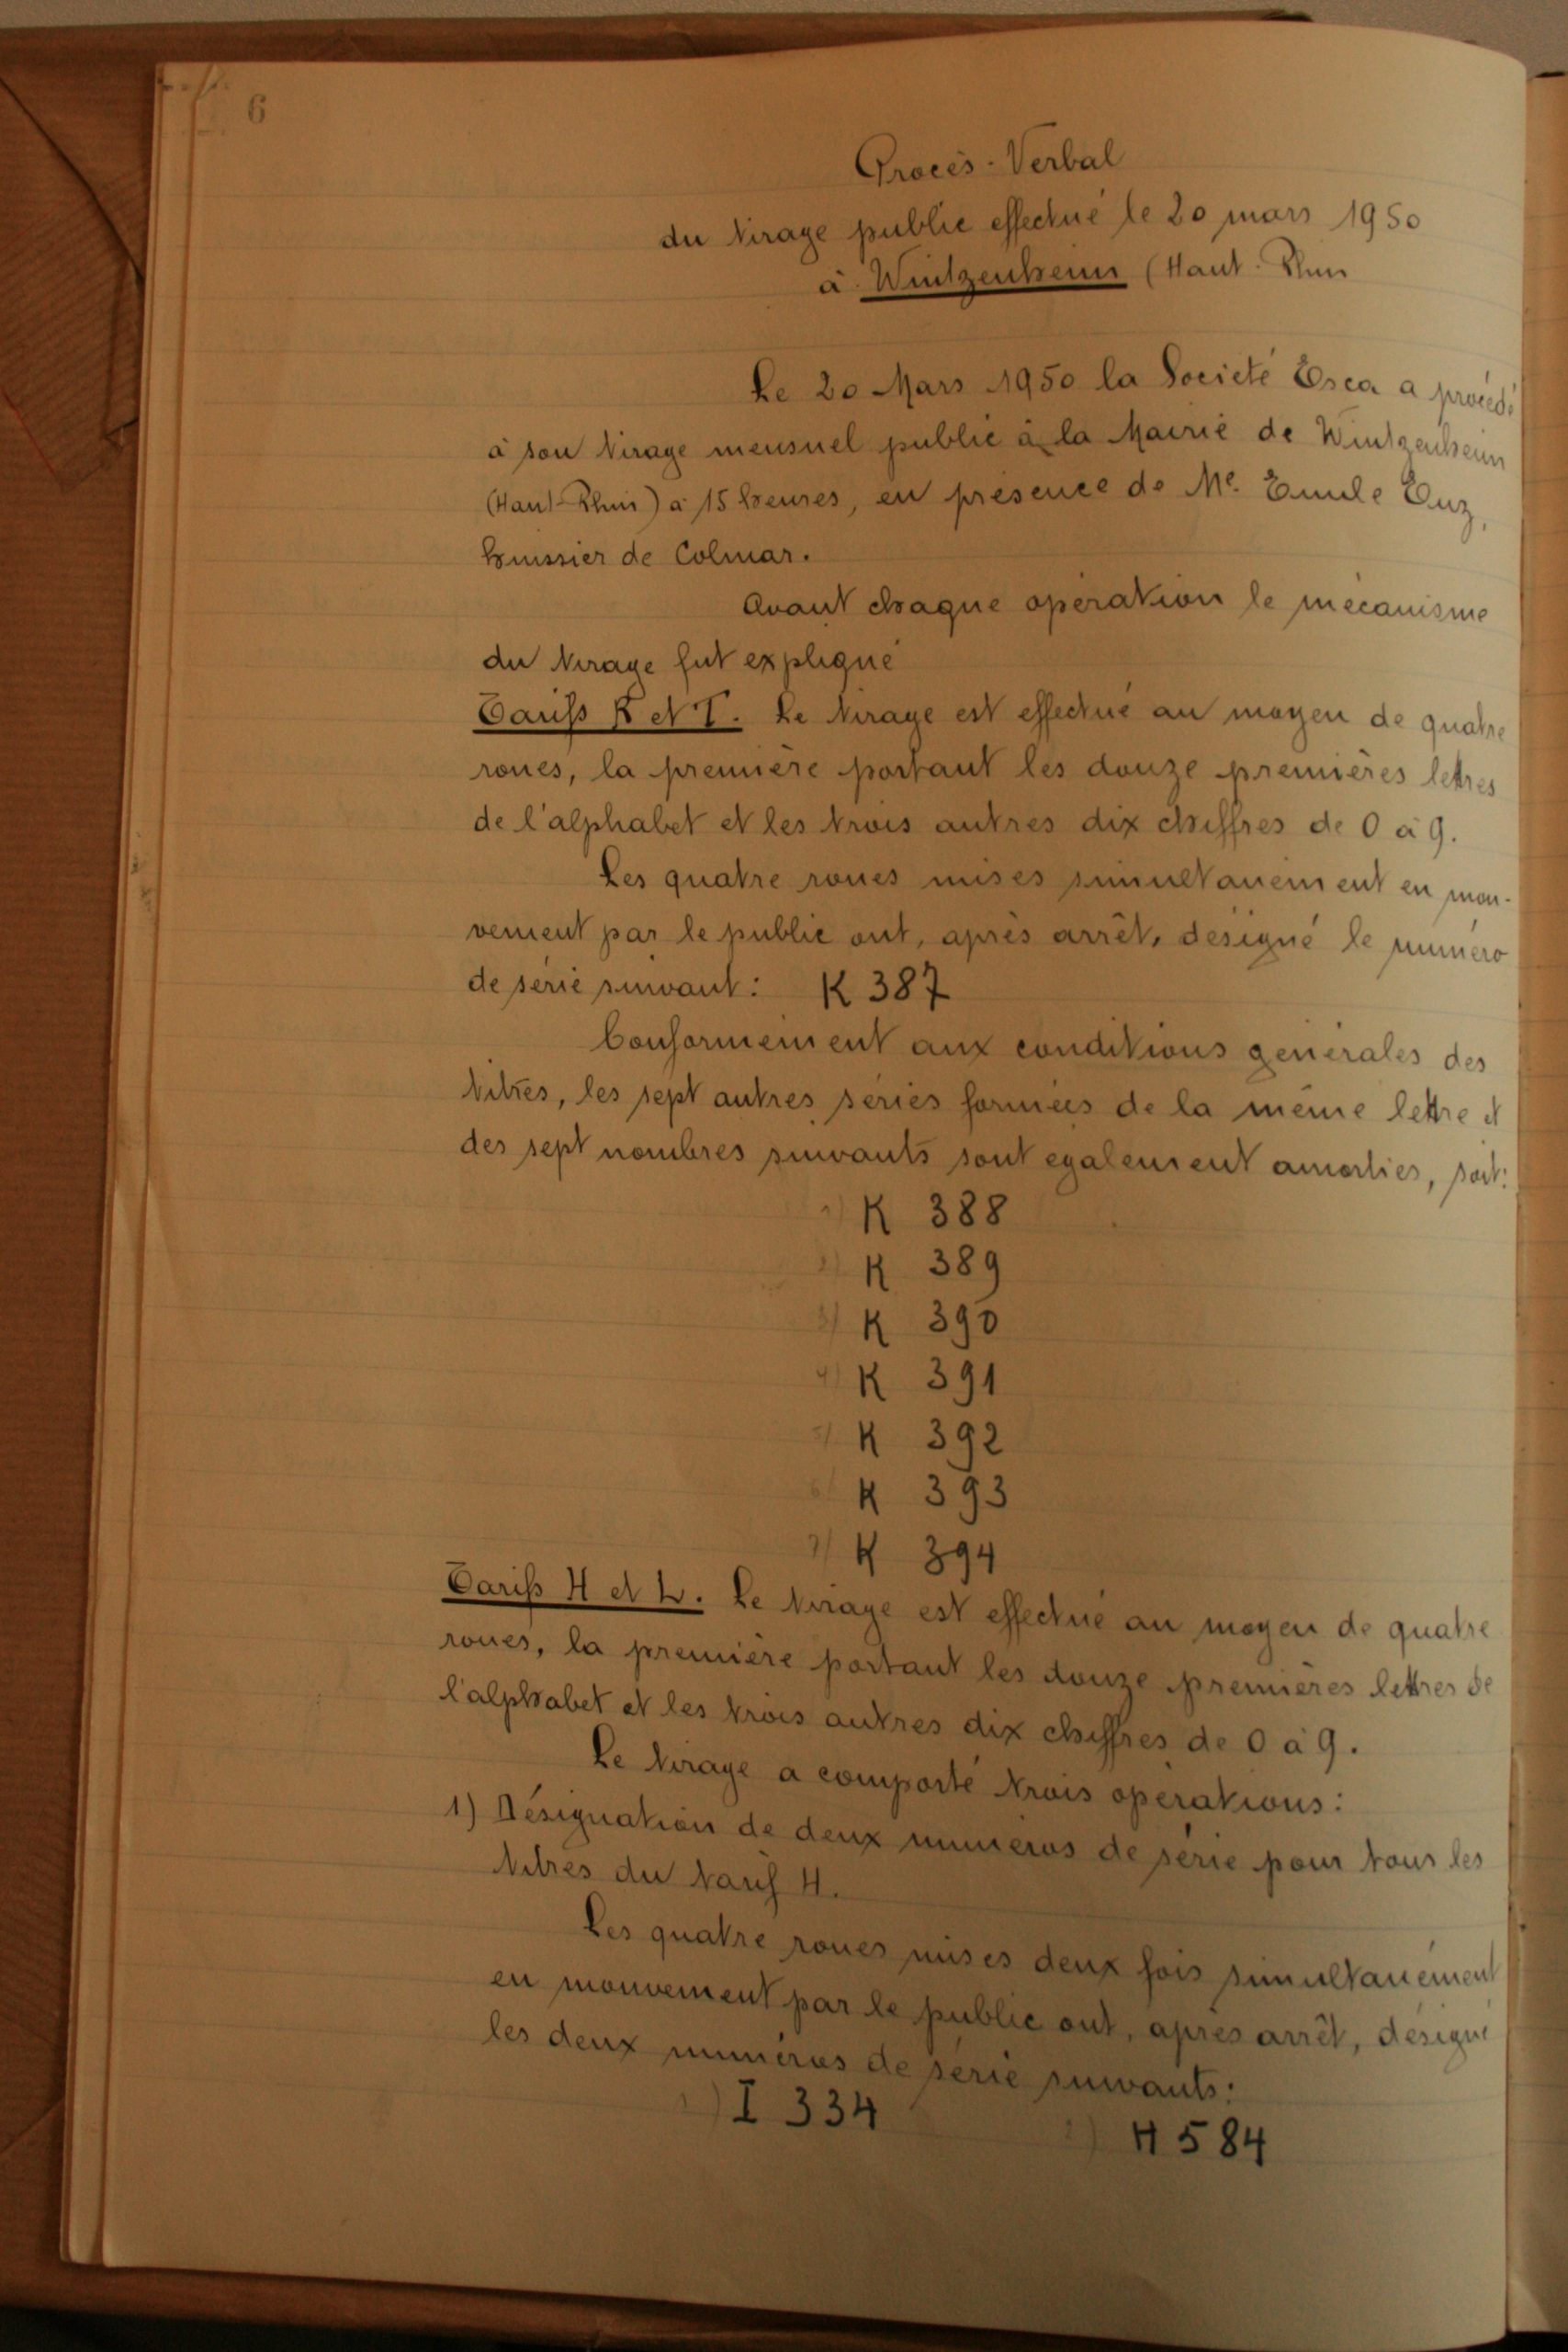 6
Procès-Verbal
du tirage public effectué le 20 mars 1950
à Wintzenheim (Haut-Rhin
Le 20 Mars 1950 la Société Esca a procédé
à son tirage mensuel public à la Mairie de Wintzenheim
(Haut-Rhin) à 15 heures, en présence de Me. Emile Enz,
huissier de Colmar.
Avant chaque opération le mécanisme
du tirage fut expliqué
Tarifs K et T. Le tirage est effectué au moyen de quatre
roues, la première portant les douze premières lettres
de l'alphabet et les trois autres dix chiffres de 0 à 9.
Les quatre roues mises simultanément en mou-
vement par le public ont, après arrêt, désigné le numéro
de série suivant: K 387
Conformément aux conditions générales des
titres, les sept autres séries formées de la même lettre et
des sept nombres suivants sont également amorties, soit:
1) K 388
2) K 389
3) K 390
4) K 391
5) K 392
6) K 393
7) K 394
Tarifs H et L. Le tirage est effectué au moyen de quatre
roues, la première portant les douze premières lettres de
l'alphabet et les trois autres dix chiffres de 0 à 9.
Le tirage a comporté trois opérations:
1) Désignation de deux numéros de série pour tous les
titres du tarif H.
Les quatre roues mises deux fois simultanément
en mouvement par le public ont, après arrêt, désigné
les deux numéros de série suivants:
1) I 334 2) H 584